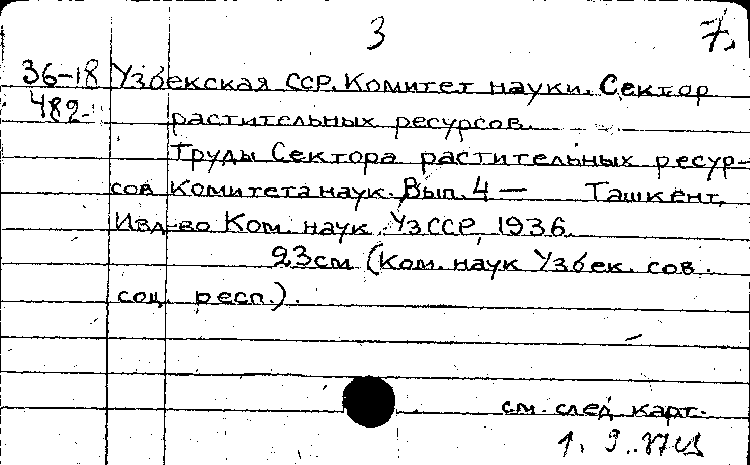 3 7.
36-18 Узбекская ССР. Комитет науки. Сектор
482 растительных ресурсов.
Труды Сектора растительных ресур-
сов Комитета наук. Вып. 4 — Ташкент,
Изд-во Ком. наук УзССР, 1936.
23см (Ком. наук Узбек. сов.
соц. респ.).
см. след. карт.